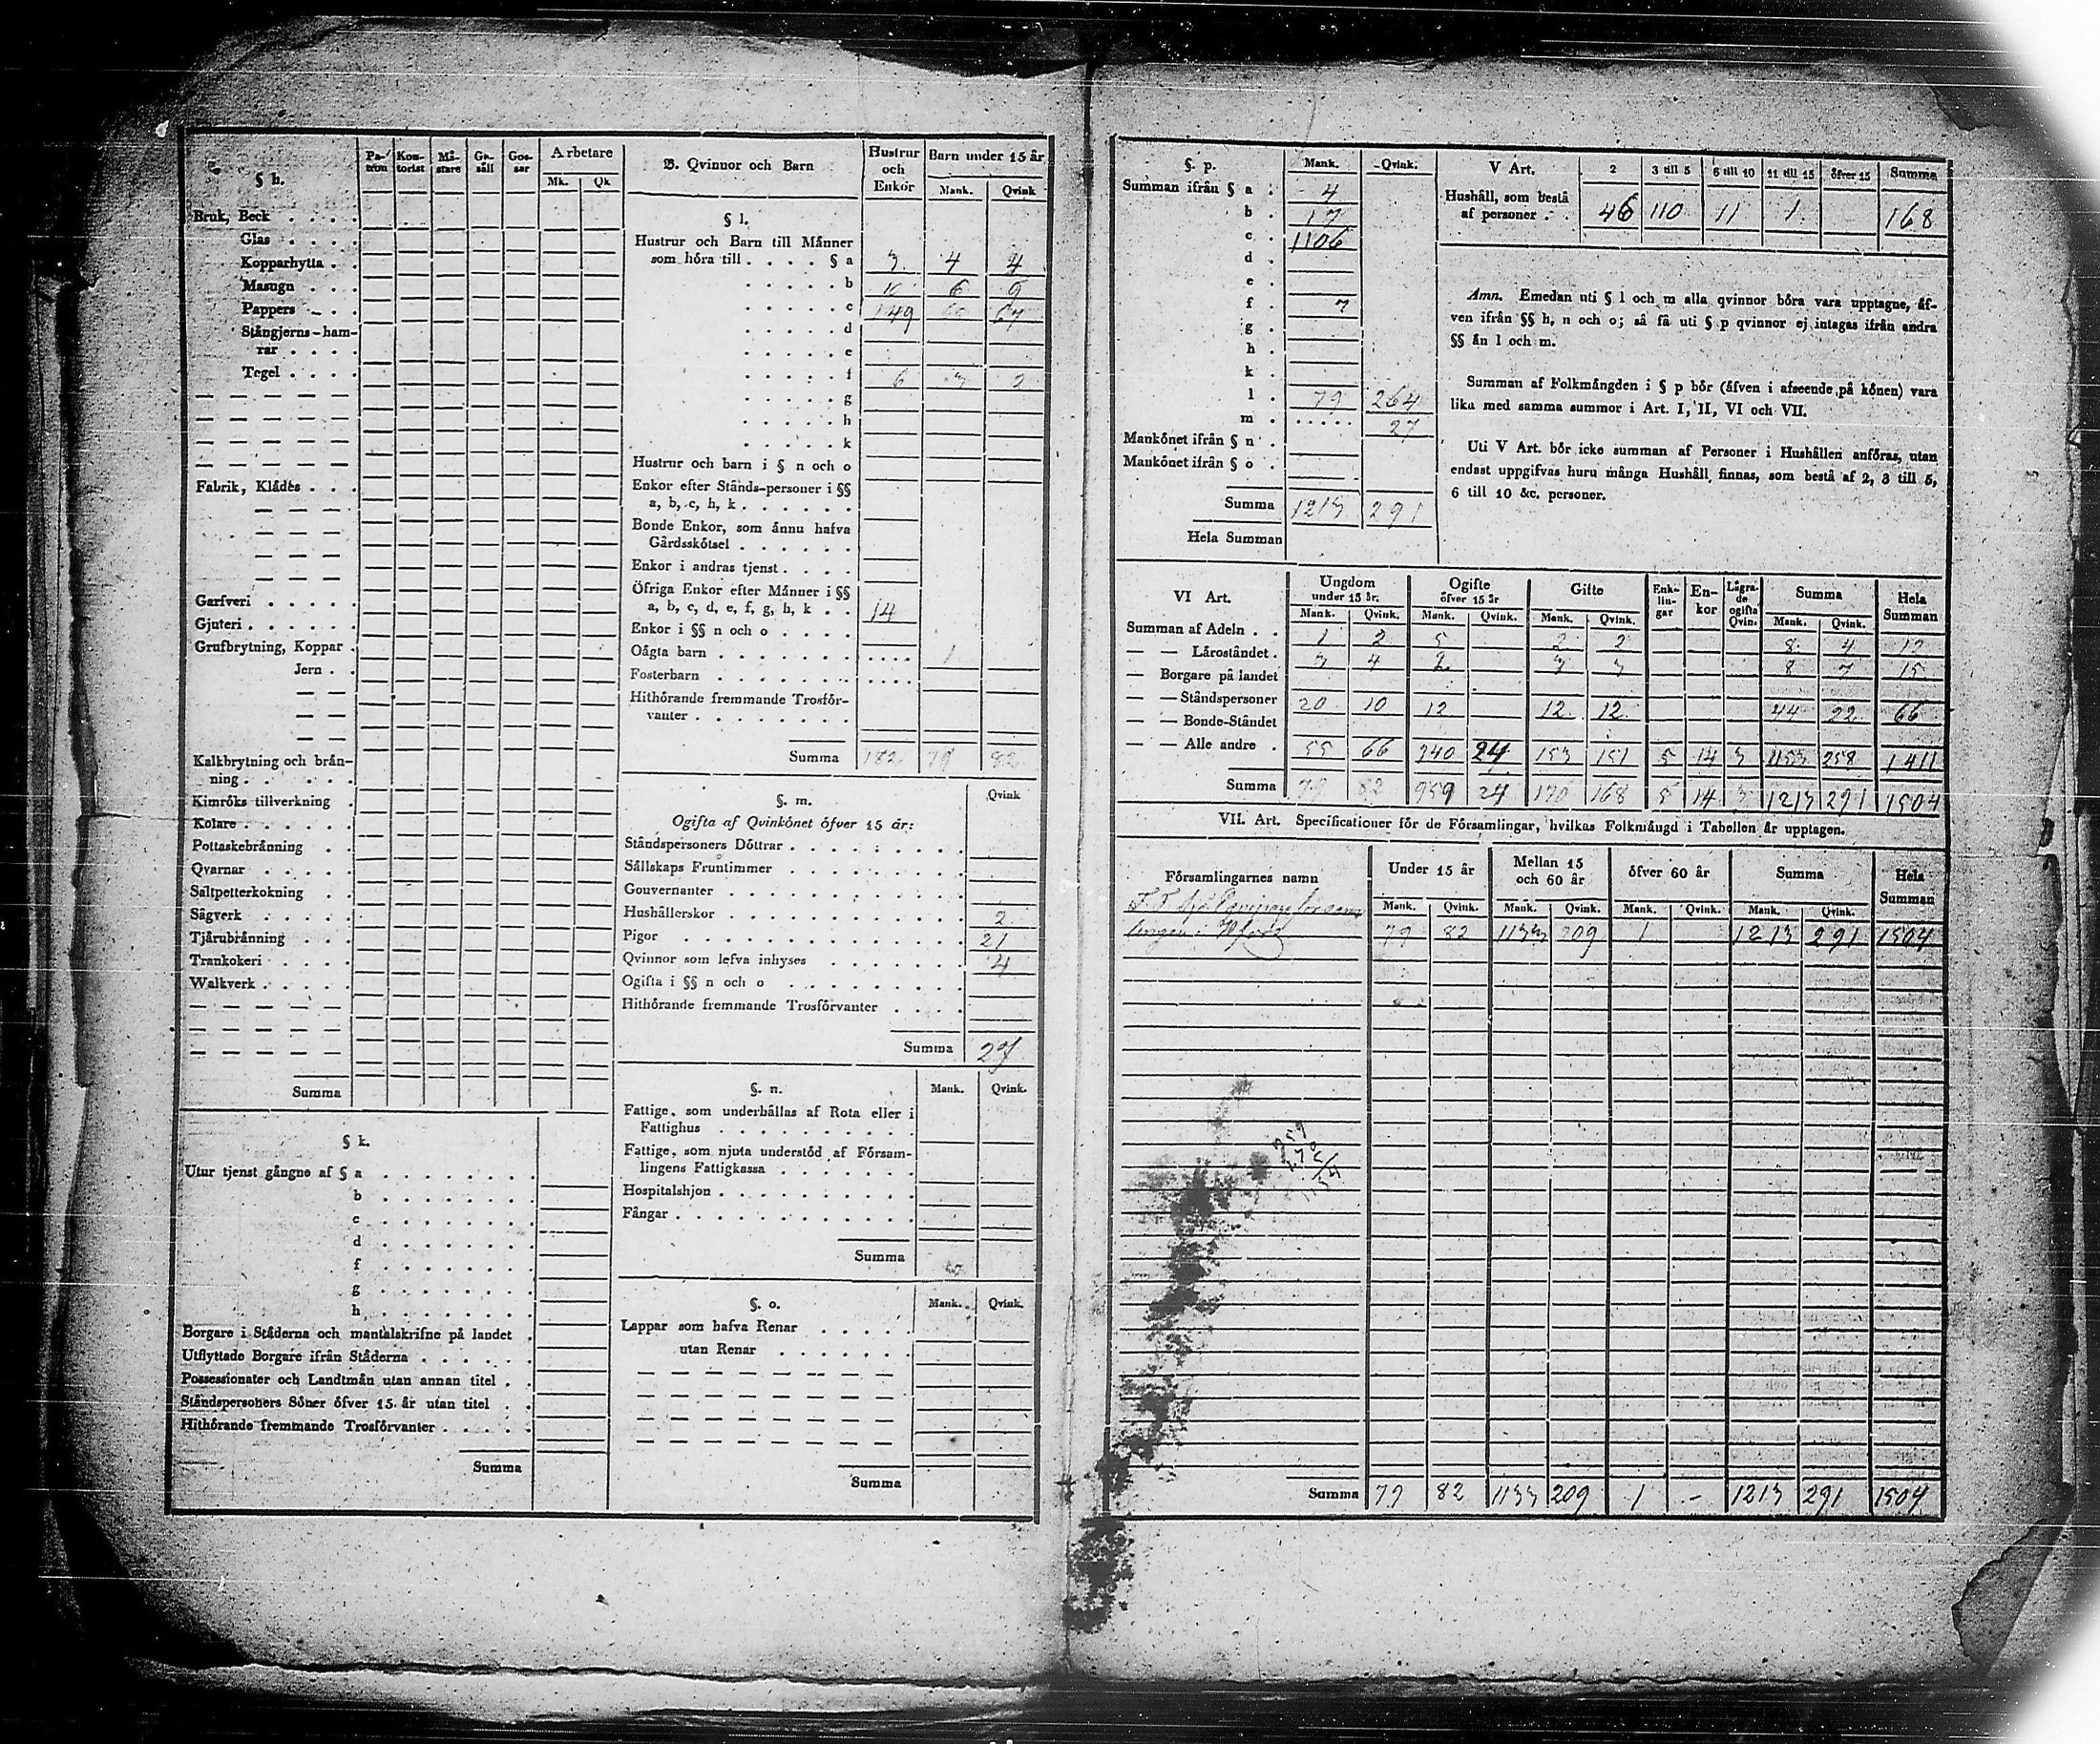 § h.
Pa-tron Kon-torist Mä-stare Ge-säll Gos-sar Arbetare
Mk. Qk
Bruk, Beck . . . .
Glas . . . .
Kopparhytta . .
Masugn . . .
Pappers . .
Stångjerns-ham-
rar . . . .
Tegel . . . .
Fabrik, Klädes . . .
Garfveri . . . . .
Gjuteri . . . . .
Grufbrytning, Koppar .
Jern . .
Kalkbrytning och brän-
ning . . . . .
Kimröks tillverkning .
Kolare . . . . .
Pottaskebränning . .
Qvarnar . . . .
Saltpetterkokning . .
Sågverk . . . . .
Tjärubränning . . .
Trankokeri . . . .
Walkverk . . . . .
Summa
§ k.
Utur tjenst gångne af § a . . . . . . .
b . . . . . . .
c . . . . . . .
d . . . . . . .
f . . . . . . .
g . . . . . . .
h . . . . . . .
Borgare i Städerna och mantalskrifne på landet .
Utflyttade Borgare ifrån Städerna . . . . . .
Possessionater och Landtmän utan annan titel . .
Ståndspersoners Söner öfver 15 år utan titel . .
Hithörande fremmande Trosförvanter . . . . .
Summa
B. Qvinnor och Barn Hustrur och Enkor Barn under 15 år
Mank. Qvink
§ l.
Hustrur och Barn till Männer
som höra till . . . . § a 3 4 4
. . . . . b 6 9
. . . . . c 149 67
. . . . . d
. . . . . e
. . . . . f 6 3 2
. . . . . g
. . . . . h
. . . . . k
Hustrur och barn i § n och o
Enkor efter Stånds-personer i §§
a, b, c, h, k . . . . . .
Bonde Enkor, som ännu hafva
Gårdsskötsel . . . . . .
Enkor i andras tjenst . . . .
Öfriga Enkor efter Männer i §§
a, b, c, d, e, f, g, h, k . . 14
Enkor i §§ n och o . . . .
Oägta barn . . . . . . . . . . . 1
Fosterbarn . . . . . . . . . . .
Hithörande fremmande Trosför-
vanter . . . . . . . .
Summa 182 79 82
§. m. Qvink
Ogifta af Qvinkönet öfver 15 år:
Ståndspersoners Döttrar . . . . . . . .
Sällskaps Fruntimmer . . . . . . . .
Gouvernanter . . . . . . . . . . .
Hushällerskor . . . . . . . . . . . 2
Pigor . . . . . . . . . . . . . 21
Qvinnor som lefva inhyses . . . . . . 4
Ogifta i §§ n och o . . . . . . . .
Hithörande fremmande Trosförvanter . . . .
Summa 27
§. n. Mank. Qvink.
Fattige, som underhållas af Rota eller i
Fattighus . . . . . . . . .
Fattige, som njuta understöd af Försam-
lingens Fattigkassa . . . . . .
Hospitalshjon . . . . . . . . . .
Fångar . . . . . . . . . . . .
Summa
§. o. Mank. Qvink.
Lappar som hafva Renar . . . .
utan Renar . . . . . .
Summa
§. p. Mank. Qvink.
Summan ifrån § a . 4
b . 17
c . 1106
d .
e .
f . 7
g .
h .
k .
l . 79 264
m . . . . . . 27
Mankönet ifrån § n .
Mankönet ifrån § o .
Summa 1213 291
Hela Summan
V Art. 2 3 till 5 6 till 10 11 till 15 öfver 15 Summa
Hushåll, som bestå
af personer . . 46 110 11 1 168
Anm. Emedan uti § l och m alla qvinnor böra vara upptagne, äf-
ven ifrån §§ h, n och o; så få uti § p qvinnor ej intagas ifrån andra
§§ än l och m.
Summan af Folkmängden i § p bör (äfven i afseende på könen) vara
lika med samma summor i Art. I, II, VI och VII.
Uti V Art. bör icke summan af Personer i Hushållen anföras, utan
endast uppgifvas huru många Hushåll finnas, som bestå af 2, 3 till 5,
6 till 10 &c. personer.
VI Art. Ungdom under 15 år. Ogifte öfver 15 år Gifte Enk-lin-gar En-kor Lägra-de ogifta Qvin. Summa Hela Summan
Mank. Qvink. Mank. Qvink. Mank. Qvink. Mank. Qvink.
Summan af Adeln . . 1 2 5 2 2 8 4 12
— — Läroståndet . 3 4 2 3 3 8 7 15
— Borgare på landet
— — Ståndspersoner 20 10 12 12 12 44 22 66
— — Bonde-Ståndet
— — Alle andre . 55 66 940 24 153 151 5 14 3 1153 258 1411
Summa 79 82 959 24 170 168 5 14 3 1213 291 1504
VII. Art. Specificationer för de Församlingar, hvilkas Folkmängd i Tabellen är upptagen.
Församlingarnes namn Under 15 år Mellan 15 och 60 år öfver 60 år Summa Hela Summan
Mank. Qvink. Mank. Qvink. Mank. Qvink. Mank. Qvink.
79 82 1133 209 1 1213 291 1504
Summa 79 82 1133 209 1 - 1213 291 1504